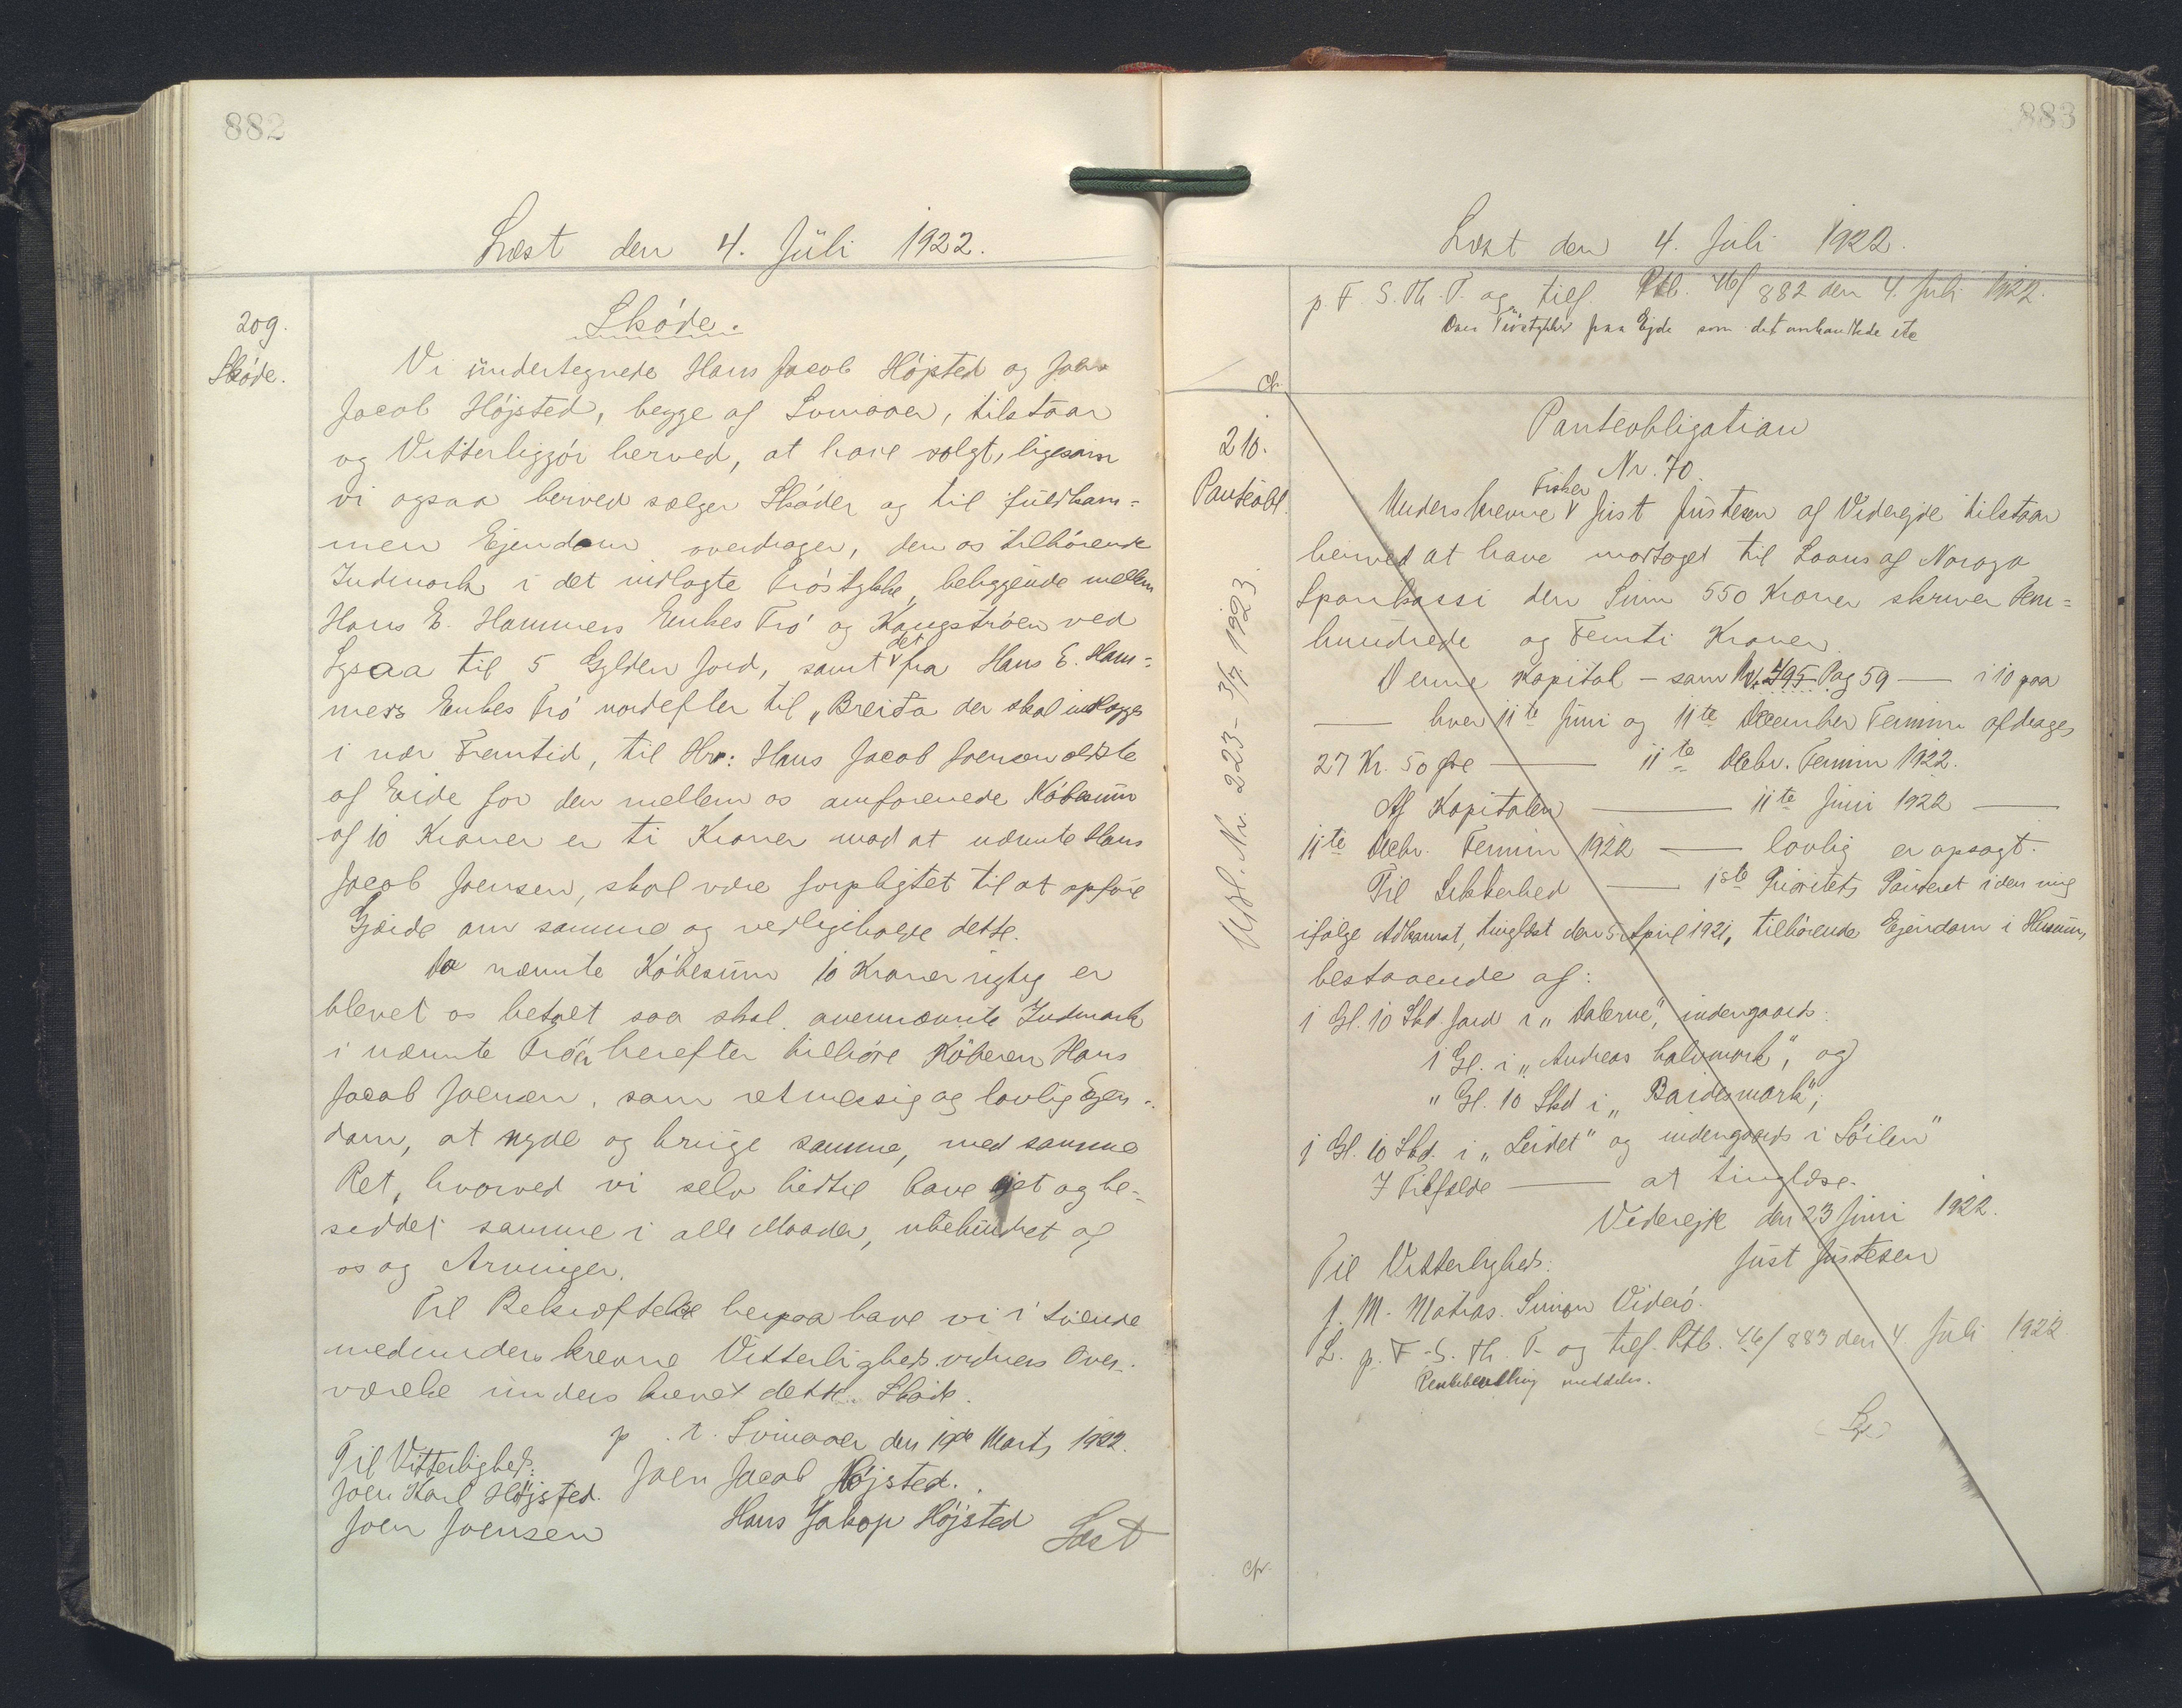 882
Læst den 4. Júli 1922.
209.
Skóde.
Skóde.
Vi úndertegnede Hans Jacob Højsted og Joen
Jacob Højsted, begge af Svinaaer, tilstaar
og Vitterliggjör herved, at have solgt, ligesom
vi ogsaa herved sælger Skóder og til fúldkom=
men Ejendom overdrager, den os tilhórende
Indmark i det indlagte Tróstykke, beliggende mellem
Hans E. Hammers Enkes Tró og Kongstróen ved
Lysaa til 5 Gylden Jord, samt det fra Hans E. Ham=
mers Enkes Tró nordefter til „Breida der skal indlægges
i nær Fremtid, til Hr: Hans Jacob Joensen ældste
af Eide for den mellem os omforenede Kóbesúm
af 10 Kroner er ti Kroner mod at nævnte Hans
Jacob Joensen, skal være forpligtet til at opfóre
Gjærde om samme og vedligeholde dette.
Da nævnte Kóbesúm 10 Kroner rigtig er
blevet os betalt saa skal ovennævnte Indmark
i nævnte Tróer herefter tilhóre Kóberen Hans
Jacob Joensen, som retmessig og lovlig Ejen=
dom, at nyde og brúge samme, med samme
Ret, hvorved vi selv hidtil have ejet og be=
siddet samme i alle Maader, ubehindret af
os og Arvinger.
Til Bekræftelse herpaa have vi i tvende
medunderskrevne Vitterligheds vidners Over=
værelse únderskrevet dette Skóde.
p. t. Svinaaer den 19de Marts 1922.
Til Vitterlighed:
Joen Jacob Højsted.
Joen Karl Højsted.
Hans Jakop Højsted
Joen Joensen
Læst
883
Læst den 4. Juli 1922.
p. F. S. Th. T. og tilf. Ptb. 46/882 den 4. Juli 1922.
Tróstykker paa Ejde som det omhandlede
cfr.
210.
Panteobl.
Udsl. Nr. 223- 3/7 1923.
Panteobligation
Nr. 70.
Underskrevne Fisker Just Justesen af Videreide tilstaar
herved at have modtaget til Laans af Norøya
Sparikassi den Sum 550 Kroner skriver Fem=
hundrede og Femti Kroner.
Denne Kapital – som Nr. 495 Pag 59 — i 10 paa
— hver 11te Juni og 11te December Termin afdrages
27 Kr. 50 Øre — 11te Decbr. Termin 1922.
Af Kapitalen — 11te Juni 1922 —
11te Decbr. Termin 1922 — lovlig er opsagt.
Til Sikkerhed — 1ste Prioritets Panteret i den mig
ifølge Adkomst, tinglæst den 5. April 1921, tilhørende Ejendom i Husum,
bestaaende af:
1 Gl. 10 Skd. Jord i „Dalerne", indengaards.
1 Gl. i „Andreas halvmark", og
„ Gl. 10 Skd i „Bardesmark";
1 Gl. 10 Skd. i „Leidet" og indengaards i Sóilen"
I Tilfælde — at tinglæse.
Videreje den 23 Juni 1922.
Til Vitterlighed:
Just Justesen
J. M. Matras. Simon Videró.
L. p. F. S. Th. T. og tilf. Ptb. 46/883 den 4. Juli 1922
meddeles.
cfr.